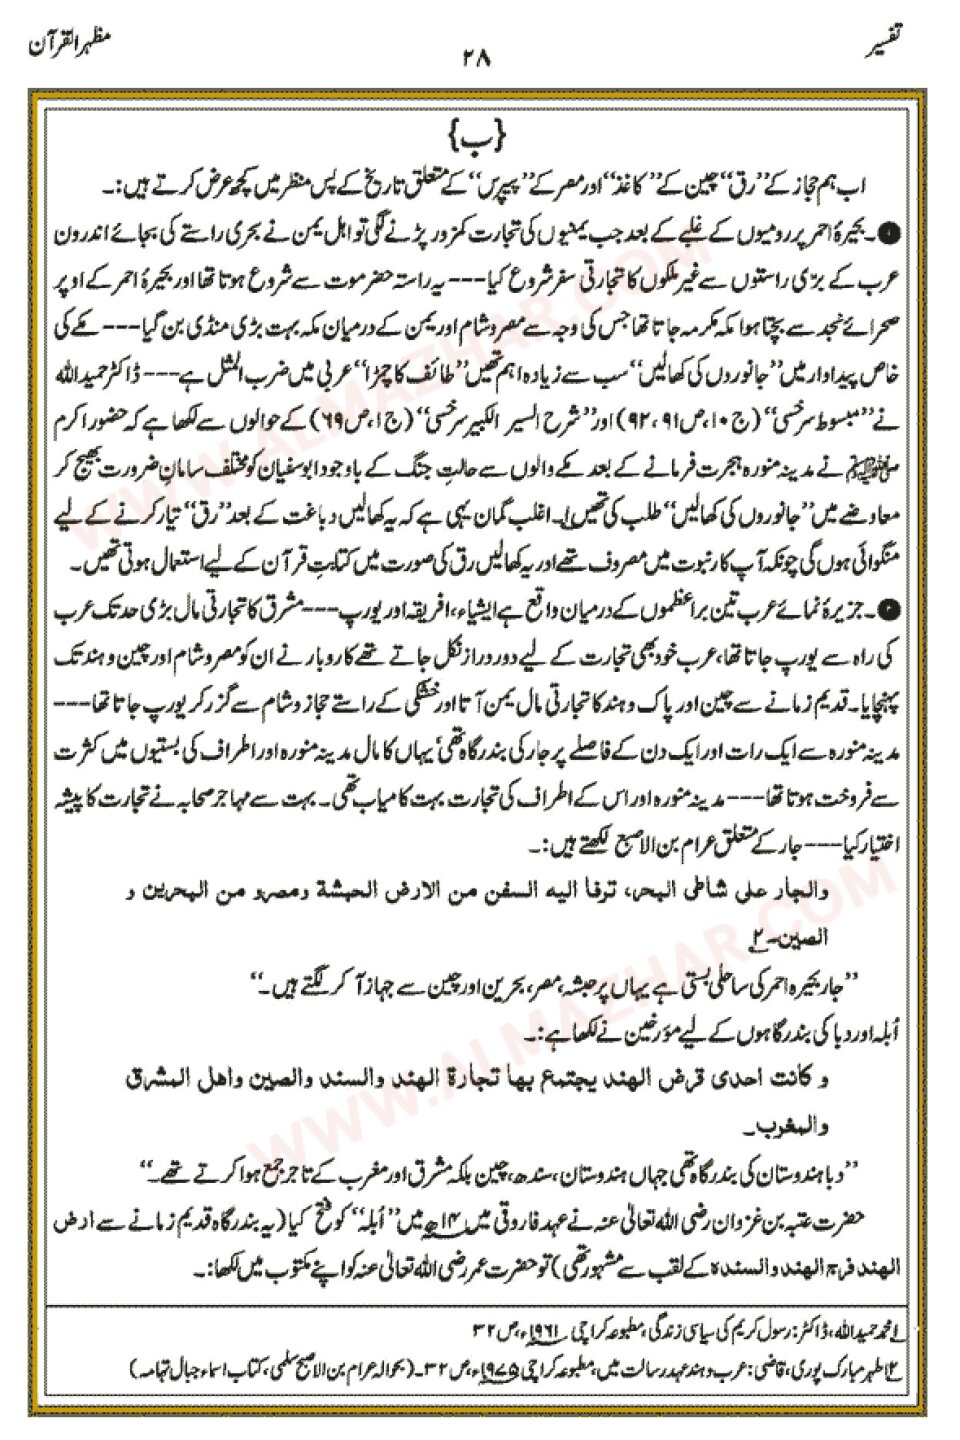 تفسیر
۲۸
مظہر القرآن
{ب}
اب ہم حجاز کے ’’رق‘‘ چین کے ’’کاغذ‘‘ اور مصر کے ’’پیپرس‘‘ کے متعلق تاریخ کے پس منظر میں کچھ عرض کرتے ہیں:۔
❶۔ بحیرۂ احمر پر رومیوں کے غلبے کے بعد جب یمنیوں کی تجارت کمزور پڑنے لگی تو اہل یمن نے بحری راستے کی بجائے اندرون
عرب کے برّی راستوں سے غیر ملکوں کا تجارتی سفر شروع کیا---یہ راستہ حضر موت سے شروع ہوتا تھا اور بحیرۂ احمر کے اوپر
صحرائے نجد سے بچتا ہوا مکہ مکرمہ جاتا تھا جس کی وجہ سے مصر و شام اور یمن کے درمیان مکہ بہت بڑی منڈی بن گیا---مکے کی
خاص پیداوار میں ’’جانوروں کی کھالیں‘‘ سب سے زیادہ اہم تھیں ’’طائف کا چمڑا‘‘ عربی میں ضرب المثل ہے---ڈاکٹر حمید اللہ
نے ’’مبسوط سرخسی‘‘ (ج۱۰، ص۹۱، ۹۲) اور ’’شرح السیر الکبیر سرخسی‘‘ (ج۱، ص۶۹) کے حوالوں سے لکھا ہے کہ حضور اکرم
ﷺ نے مدینہ منورہ ہجرت فرمانے کے بعد مکے والوں سے حالتِ جنگ کے باوجود ابو سفیان کو مختلف سامانِ ضرورت بھیج کر
معاوضے میں ’’جانوروں کی کھالیں‘‘ طلب کی تھیں۱۔ اغلب گمان یہی ہے کہ یہ کھالیں دباغت کے بعد ’’رق‘‘ تیار کرنے کے لیے
منگوائی ہوں گی چونکہ آپ کارِ نبوت میں مصروف تھے اور یہ کھالیں رق کی صورت میں کتابتِ قرآن کے لیے استعمال ہوتی تھیں۔
❷۔ جزیرۂ نمائے عرب تین براعظموں کے درمیان واقع ہے ایشیاء، افریقہ اور یورپ---مشرق کا تجارتی مال بڑی حد تک عرب
کی راہ سے یورپ جاتا تھا، عرب خود بھی تجارت کے لیے دور دراز نکل جاتے تھے کاروبار نے ان کو مصر و شام اور چین و ہند تک
پہنچایا۔ قدیم زمانے سے چین اور پاک و ہند کا تجارتی مال یمن آتا اور خشکی کے راستے حجاز و شام سے گزر کر یورپ جاتا تھا---
مدینہ منورہ سے ایک رات اور ایک دن کے فاصلے پر جار کی بندرگاہ تھی‘ یہاں کا مال مدینہ منورہ اور اطراف کی بستیوں میں کثرت
سے فروخت ہوتا تھا---مدینہ منورہ اور اس کے اطراف کی تجارت بہت کامیاب تھی۔ بہت سے مہاجر صحابہ نے تجارت کا پیشہ
اختیار کیا---جار کے متعلق عرام بن الاصبع لکھتے ہیں:۔
والجار علی شاطی البحر، ترفا الیه السفن من الارض الحبشة ومصرو من البحرین و
الصین۔۲
’’جار بحیرہ احمر کی ساحلی بستی ہے یہاں پر حبشہ، مصر، بحرین اور چین سے جہاز آ کر لگتے ہیں۔‘‘
اُبلہ اور دبا کی بندرگاہوں کے لیے مؤرخین نے لکھا ہے:۔
و کانت احدی قرض الهند یجتمع بها تجارة الهند والسند والصین واهل المشرق
والمغرب۔
’’دبا ہندوستان کی بندرگاہ تھی جہاں ہندوستان، سندھ، چین بلکہ مشرق اور مغرب کے تاجر جمع ہوا کرتے تھے۔‘‘
حضرت عتبہ بن غزوان رضی اللہ تعالیٰ عنہ نے عہد فاروقی میں ۱۴ھ میں ’’اُبلہ‘‘ کو فتح کیا (یہ بندرگاہ قدیم زمانے سے ارض
الهند فرج الهند والسنده کے لقب سے مشہور تھی) تو حضرت عمر رضی اللہ تعالیٰ عنہ کو اپنے مکتوب میں لکھا:۔
۱ محمد حمید اللہ، ڈاکٹر: رسول کریم کی سیاسی زندگی، مطبوعہ کراچی ۱۹۶۱ء، ص۳۲
۲ اطہر مبارک پوری، قاضی: عرب و ہند عہد رسالت میں، مطبوعہ کراچی ۱۹۷۵ء، ص۳۲۔ (بحوالہ عرام بن الاصبح سلمی، کتاب اسماء جبال تهامہ)
WWW.ALMAZHAR.COM
WWW.ALMAZHAR.COM